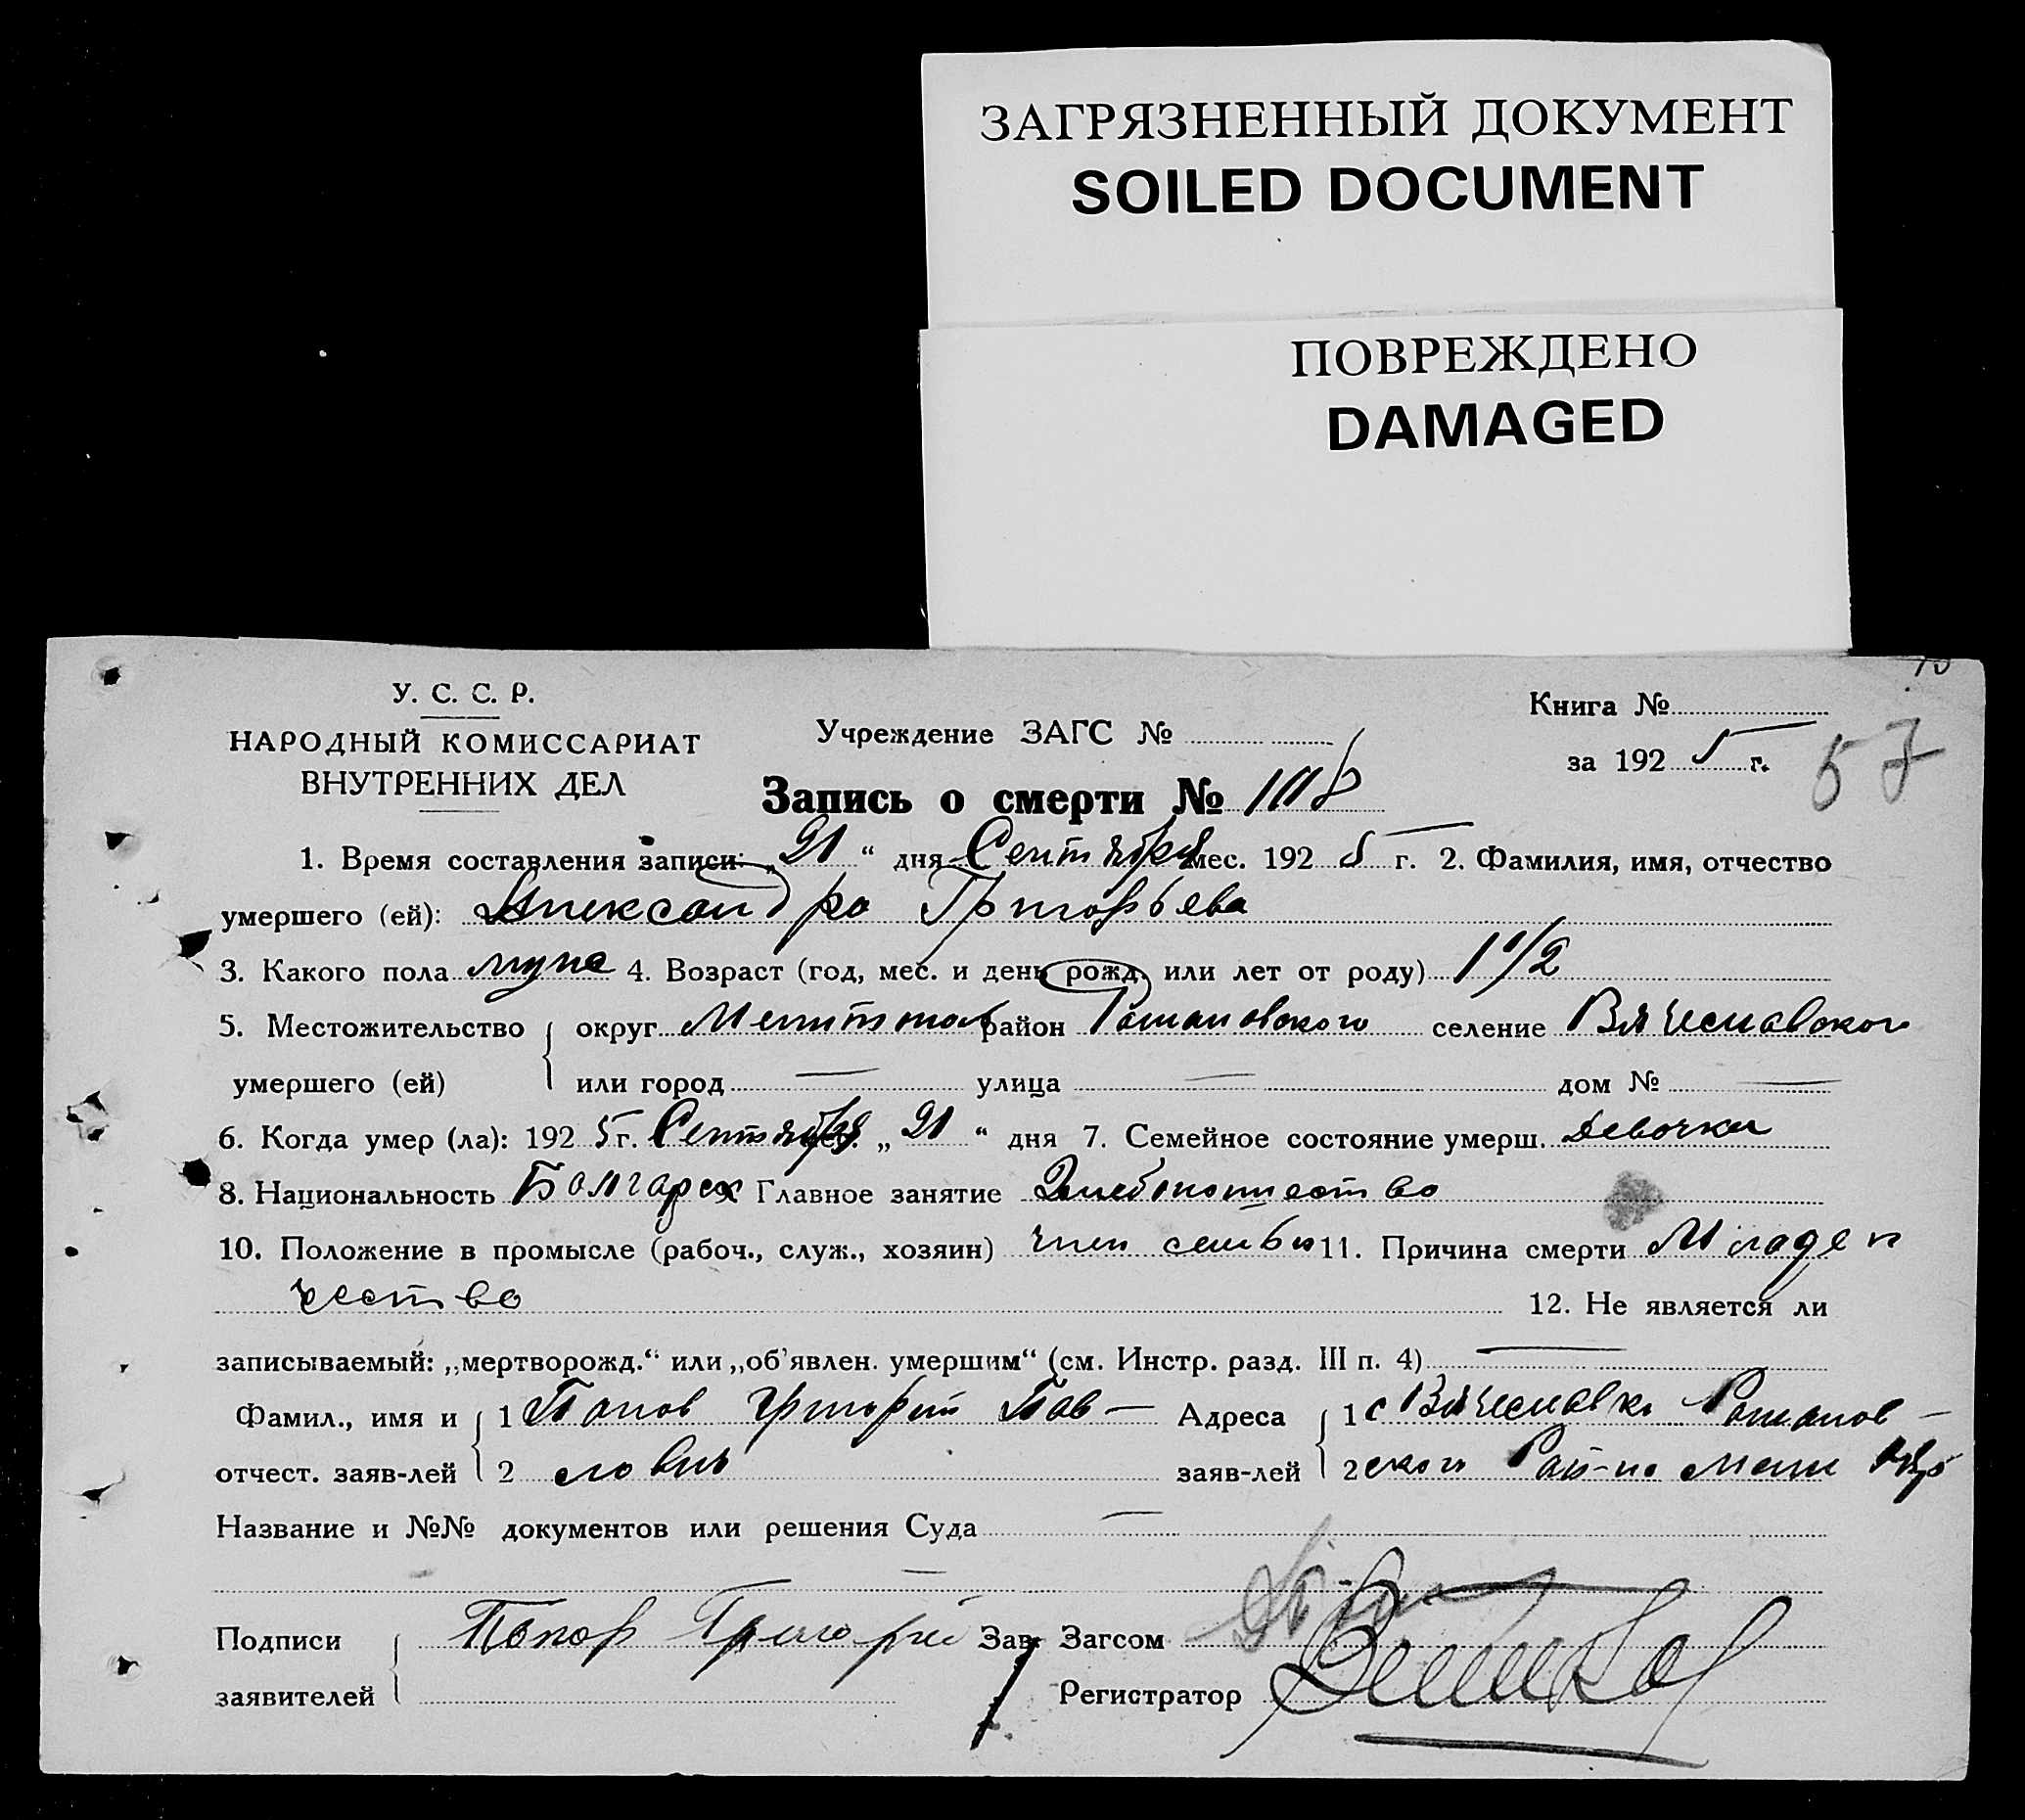 ЗАГРЯЗНЕННЫЙ ДОКУМЕНТ
SOILED DOCUMENT
ПОВРЕЖДЕНО
DAMAGED
У. С. С. Р.
НАРОДНЫЙ КОМИССАРИАТ
ВНУТРЕННИХ ДЕЛ
Учреждение ЗАГС №
Книга №
за 1925 г. 57
Запись о смерти № 118
1. Время составления записи: „21“ дня Сентября мес. 1925 г. 2. Фамилия, имя, отчество
умершего (ей): Александра Григорьева
3. Какого пола 4. Возраст (год, мес. и день рожд. или лет от роду) 1 1/2
5. Местожительство округ Мелитопол район Романовского селение Вячеславского
умершего (ей) или город — улица — дом № —
6. Когда умер (ла): 1925 г. Сентября „21“ дня 7. Семейное состояние умерш. девочка
8. Национальность Болгарск Главное занятие Хлебопашество
10. Положение в промысле (рабоч., служ., хозяин) член семьи 11. Причина смерти Младен
чество 12. Не является ли
записываемый: „мертворожд.“ или „об'явлен. умершим“ (см. Инстр. разд. III п. 4) —
Фамил., имя и 1 Папов Григорий Пав— Адреса 1 с Вячеславка Романов—
отчест. заяв-лей 2 лович заяв-лей 2 ского Рай-на Мели
Название и №№ документов или решения Суда —
—
Подписи Попов Григорий Зав. Загсом
заявителей Регистратор